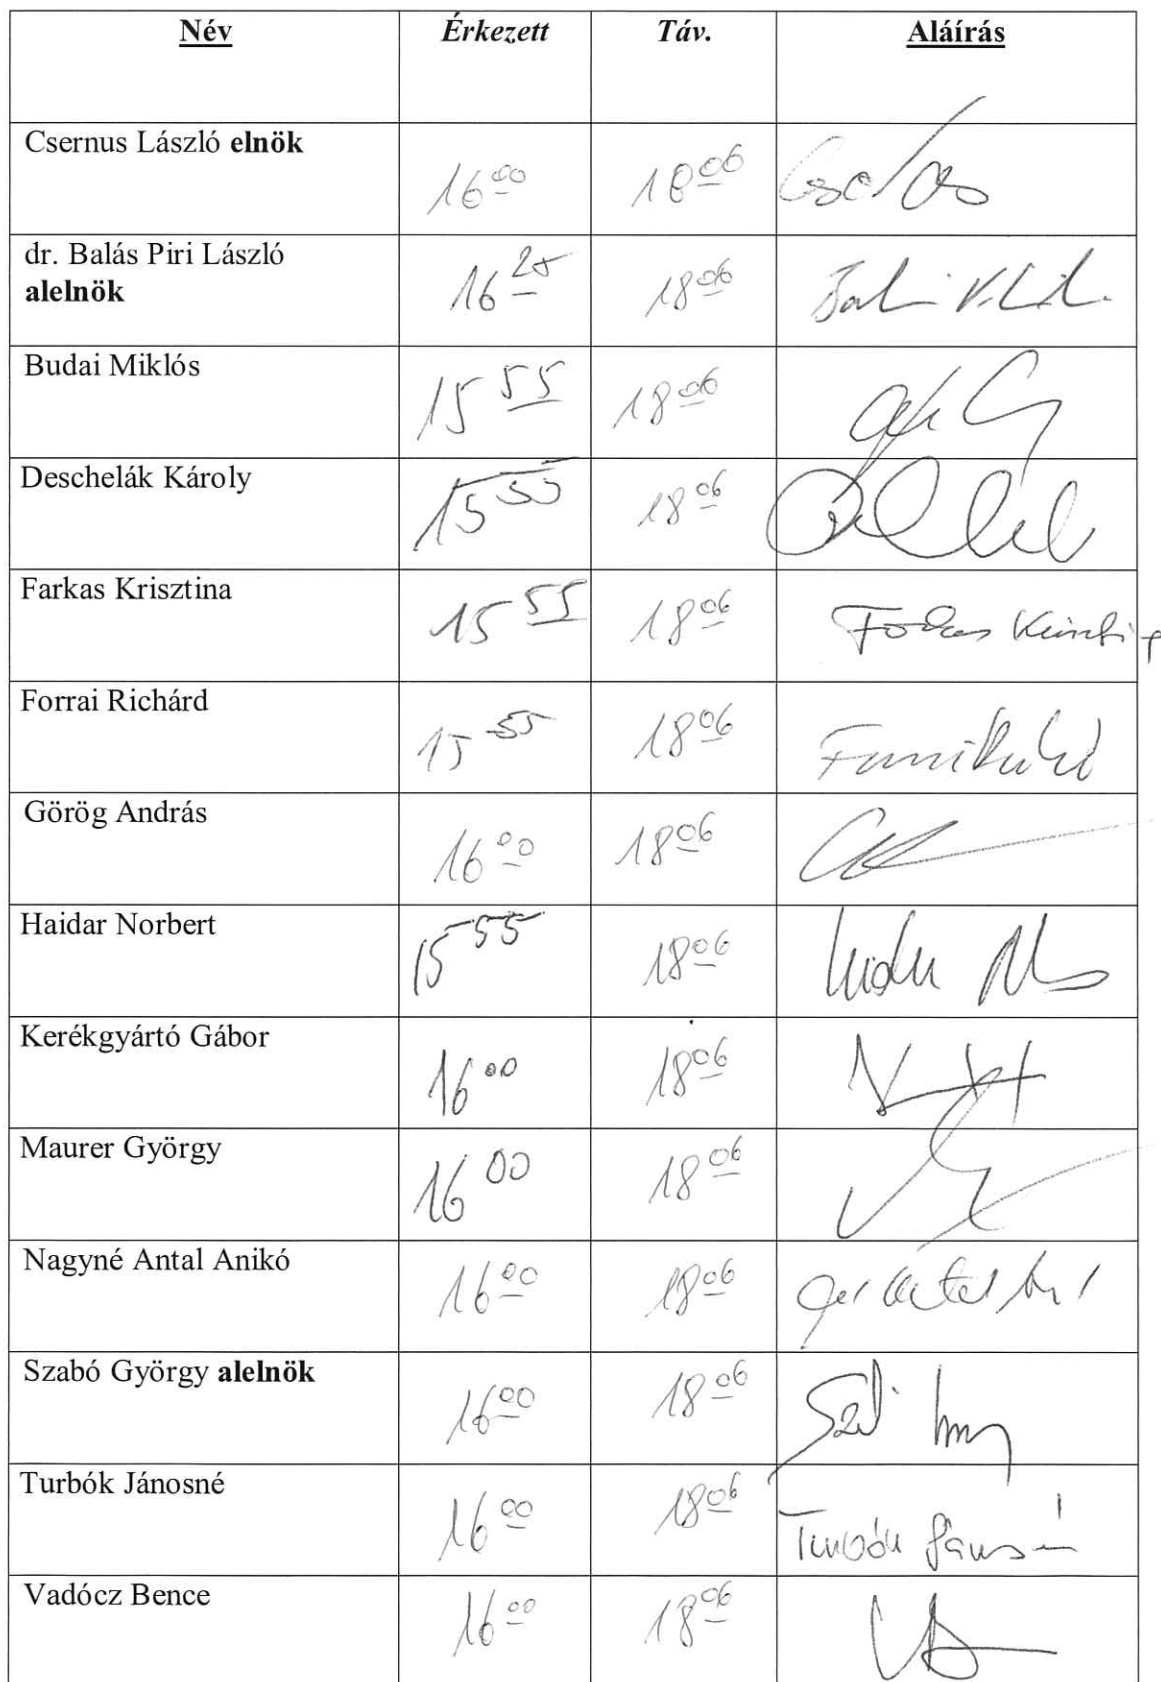 Név Érkezett Táv. Aláírás
Csernus László elnök
16 00 18 06
dr. Balás Piri László
alelnök
16 25 18 06
Budai Miklós
15 55 18 06
Deschelák Károly
15 55 18 06
Farkas Krisztina
15 55 18 06 Farkas Krisztina
Forrai Richárd
15 55 18 06
Görög András
16 00 18 06
Haidar Norbert
15 55 18 06
Kerékgyártó Gábor
16 00 18 06
Maurer György
16 00 18 06
Nagyné Antal Anikó
16 00 18 06
Szabó György alelnök
16 00 18 06
Turbók Jánosné
16 00 18 06 Turbók Jánosné
Vadócz Bence
16 00 18 06